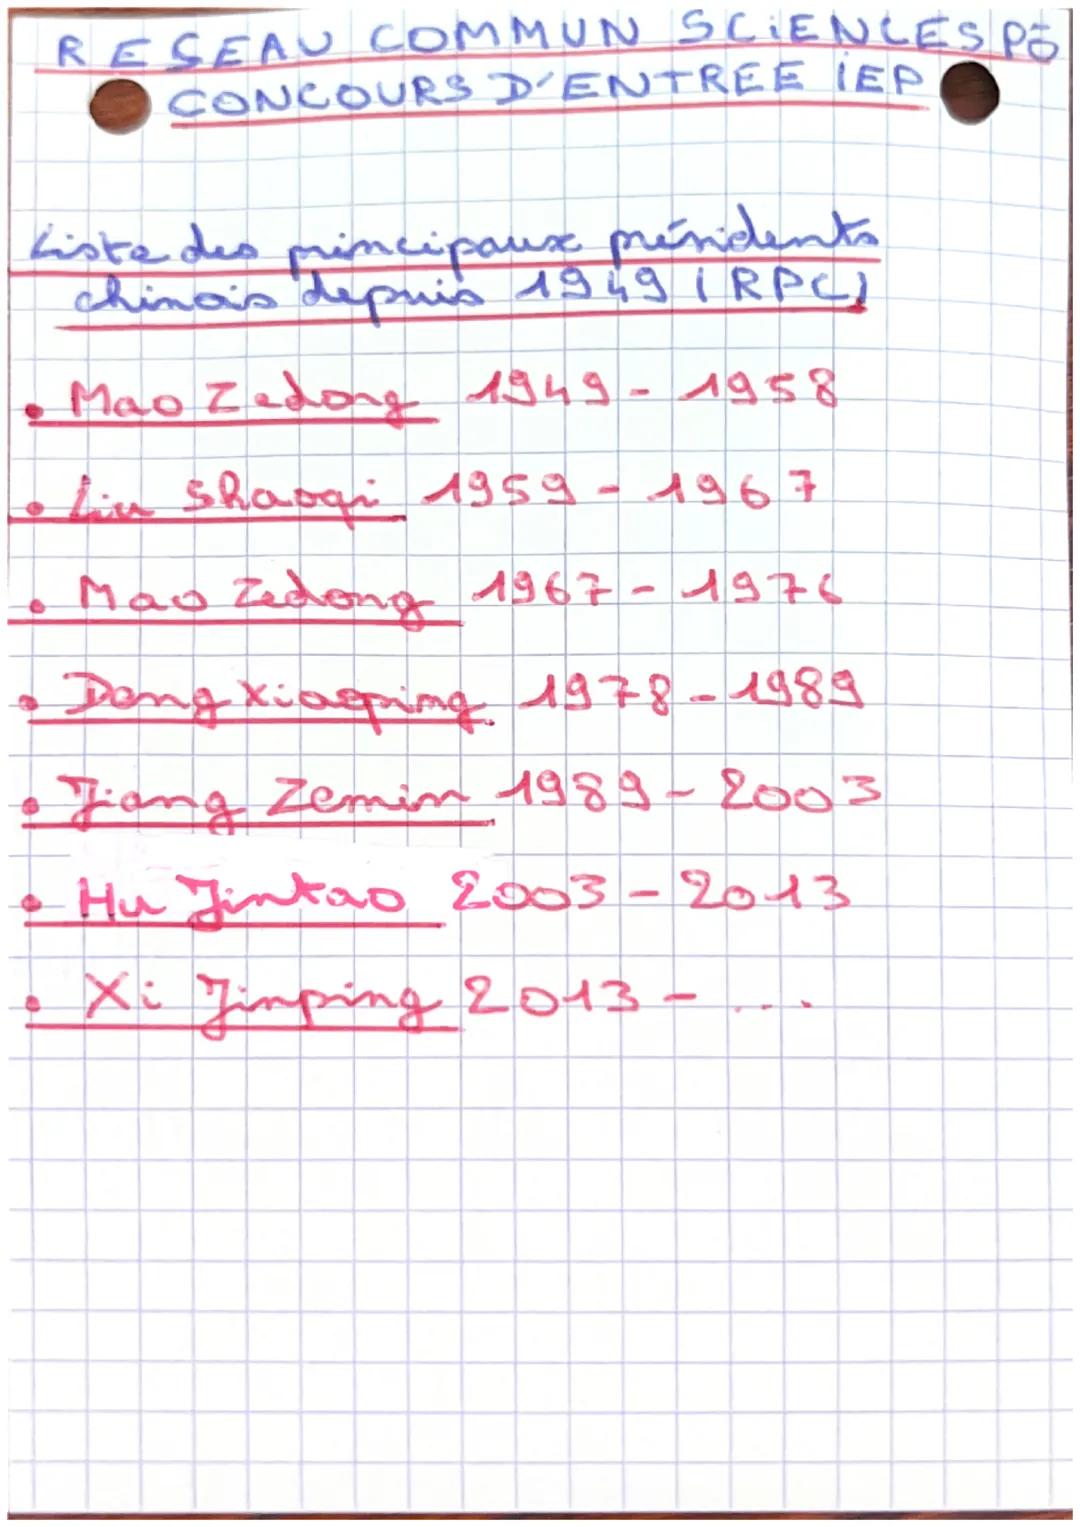 RESEAU COMMUN SCiENCES PO
CONCOURS D'ENTREE iEP
Liste des principaux présidents
chinois depuis 1949 (RPC)
• Mao Zedong 1949 - 1958
• Liu Shaoqi 1959 - 1967
• Mao Zedong 1967 - 1976
• Deng Xiaoping 1978 - 1989
• Jiang Zemin 1989 - 2003
• Hu Jintao 2003 - 2013
• Xi Jinping 2013 - ...